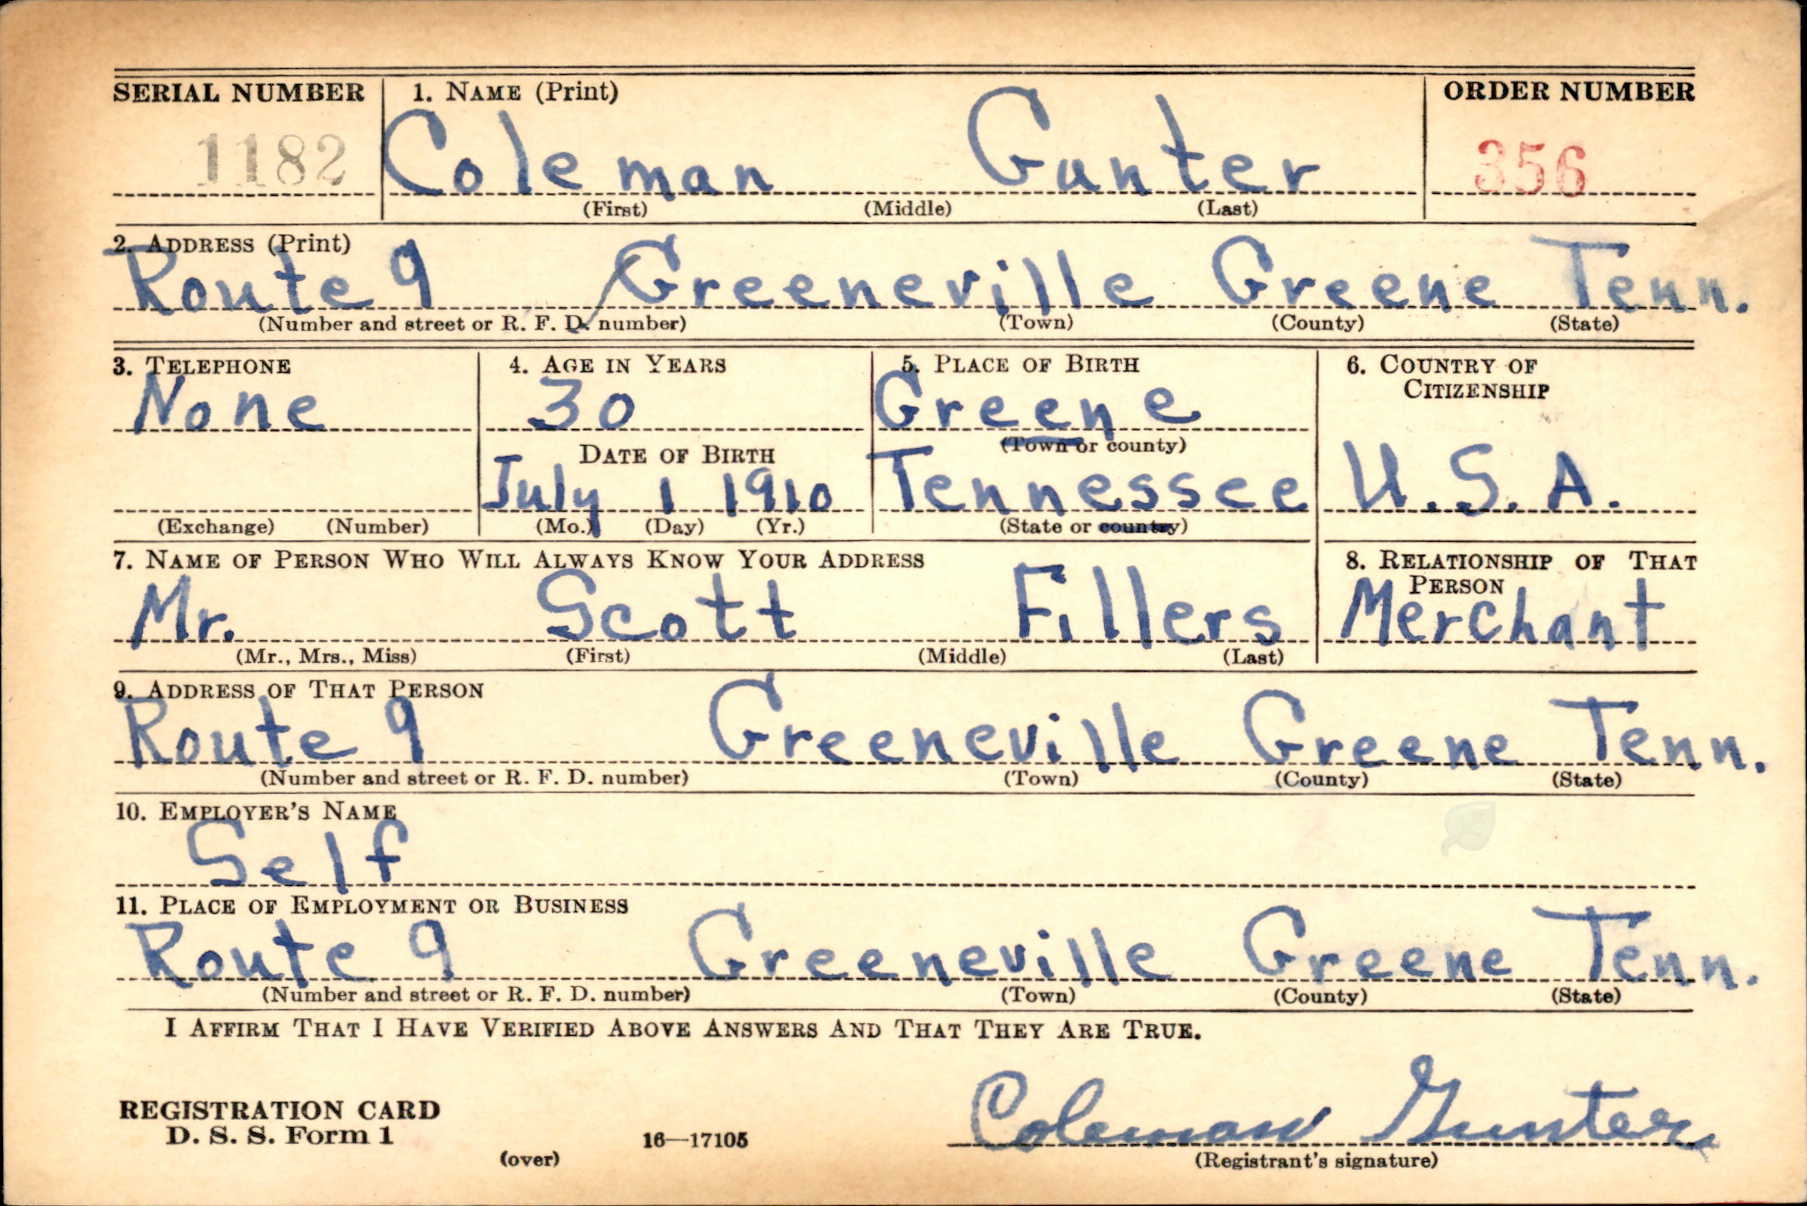 SERIAL NUMBER 1. NAME (Print) ORDER NUMBER
1182 Coleman Gunter 356
(First) (Middle) (Last)
2. ADDRESS (Print)
Route 9 Greeneville Greene Tenn.
(Number and street or R. F. D. number) (Town) (County) (State)
3. TELEPHONE 4. AGE IN YEARS 5. PLACE OF BIRTH 6. COUNTRY OF
CITIZENSHIP
None 30 Greene
(Town or county)
DATE OF BIRTH
July 1 1910 Tennessee U.S.A.
(Exchange) (Number) (Mo.) (Day) (Yr.) (State or country)
7. NAME OF PERSON WHO WILL ALWAYS KNOW YOUR ADDRESS 8. RELATIONSHIP OF THAT
PERSON
Mr. Scott Fillers Merchant
(Mr., Mrs., Miss) (First) (Middle) (Last)
9. ADDRESS OF THAT PERSON
Route 9 Greeneville Greene Tenn.
(Number and street or R. F. D. number) (Town) (County) (State)
10. EMPLOYER'S NAME
Self
11. PLACE OF EMPLOYMENT OR BUSINESS
Route 9 Greeneville Greene Tenn.
(Number and street or R. F. D. number) (Town) (County) (State)
I AFFIRM THAT I HAVE VERIFIED ABOVE ANSWERS AND THAT THEY ARE TRUE.
REGISTRATION CARD
D. S. S. Form 1 16—17105 Coleman Gunter
(over) (Registrant's signature)